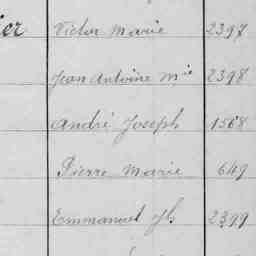 ier Victor Marie 2397
Jean Antoine Mie 2398
André Joseph 1568
Pierre Marie 649
Emmanuel Jh 2399